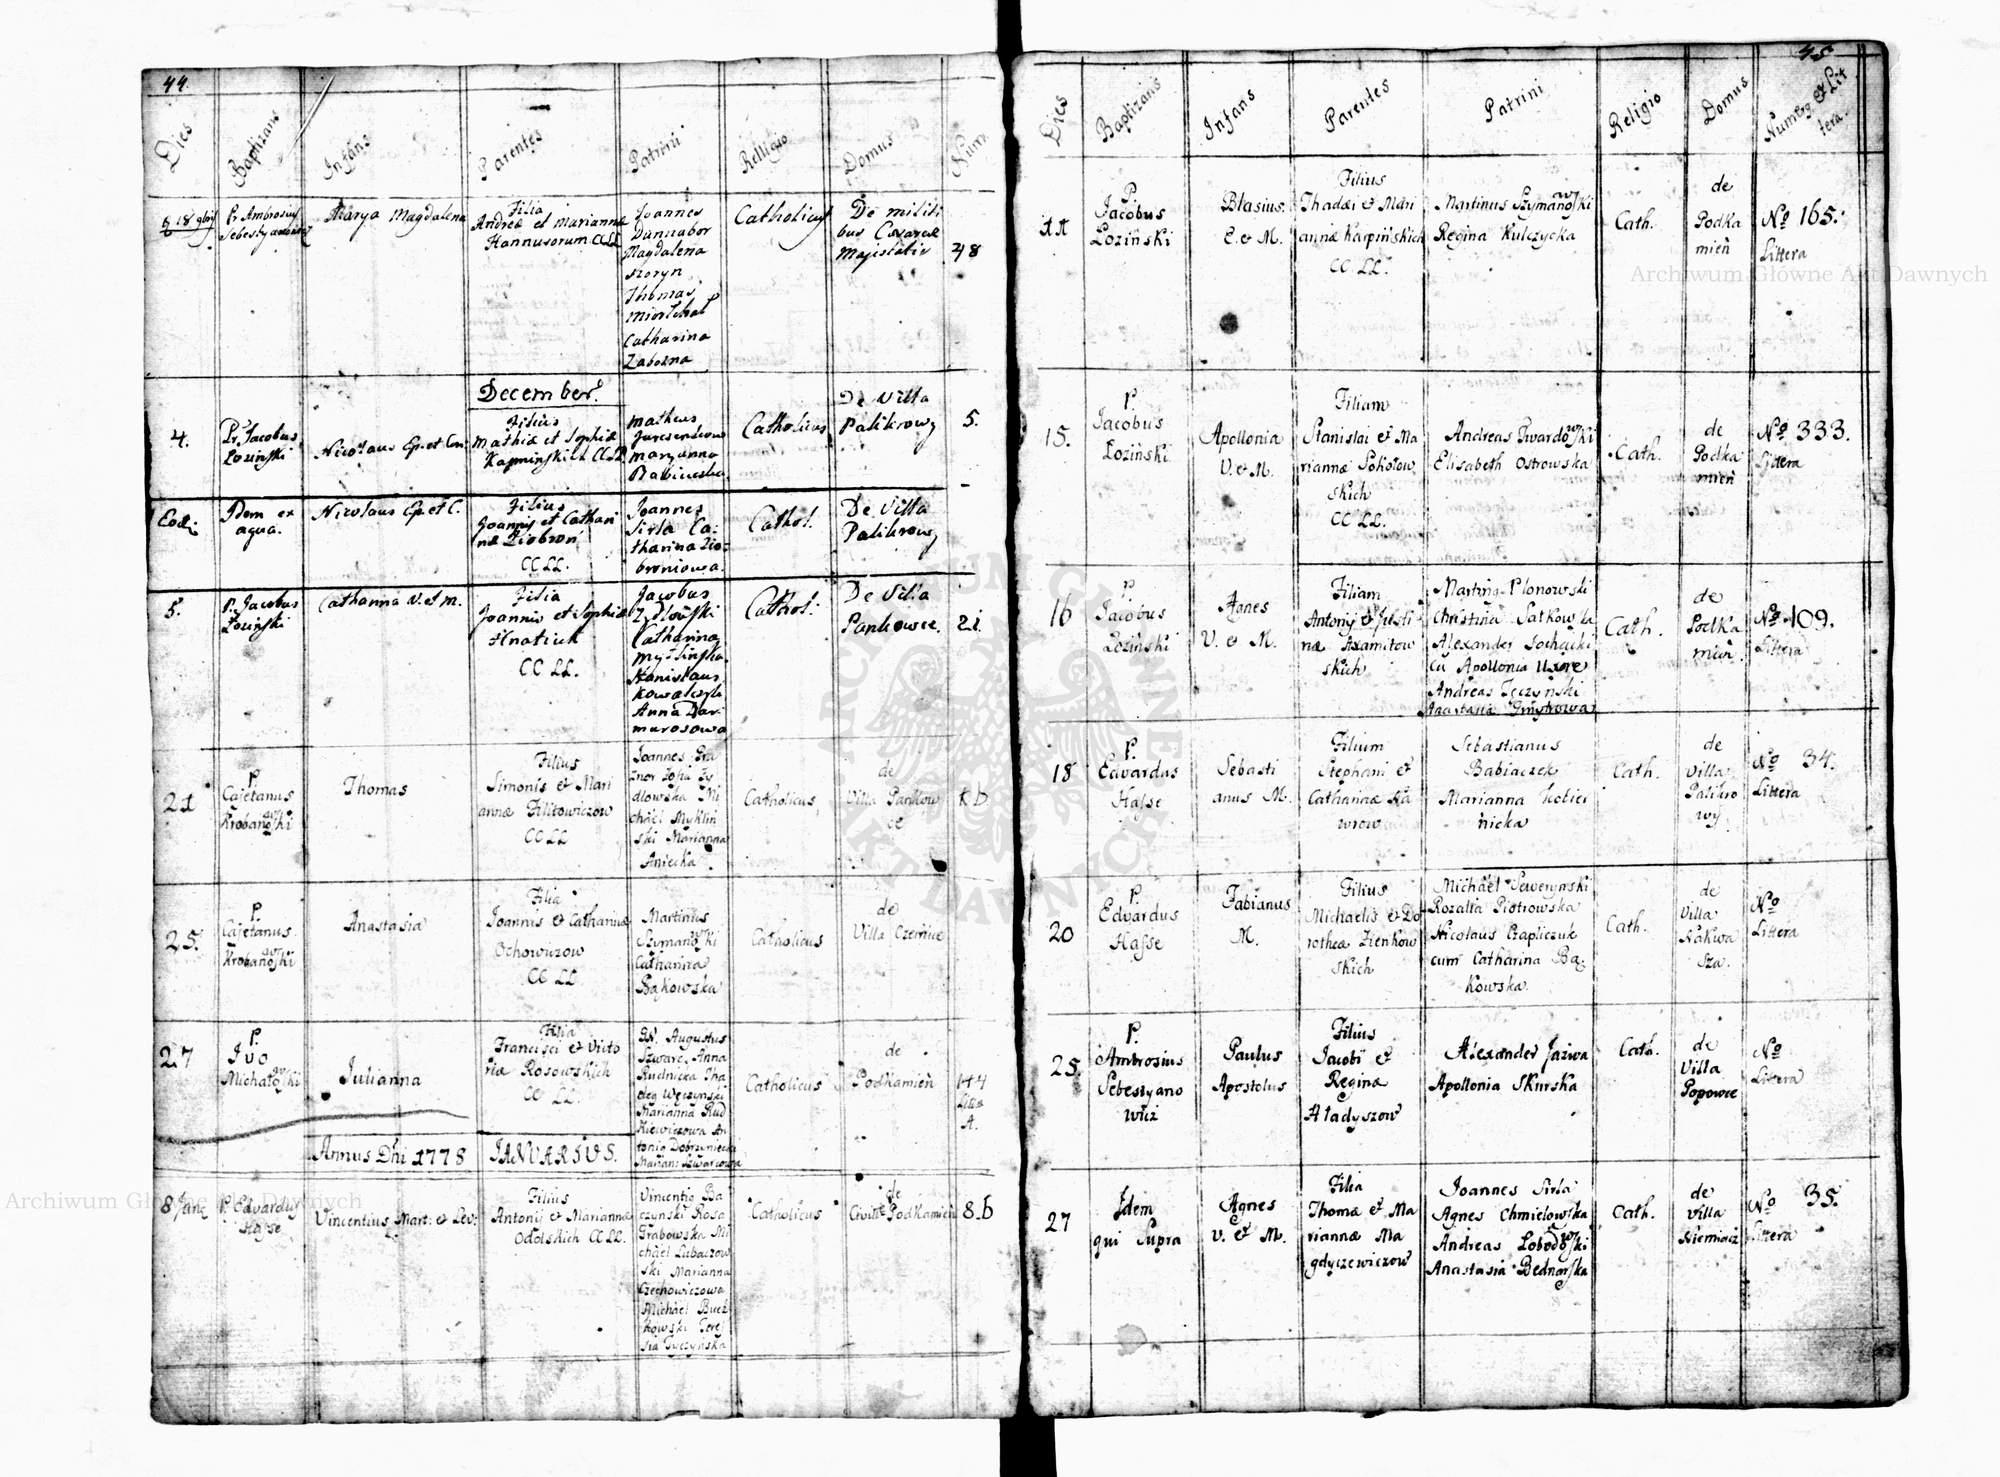 44
Dies
Baptizans
Infans
Parentes
Patrini
Relligio
Domus
Num.
Pr Ambrosius
Marya Magdalena
Filia
Andreæ et Mariannæ
Hannusorum CC LL
Joannes
Dunnabor
Magdalena
Szoryn
Thomas
Catharina
Zabozna
Catholicus
De militi
bus Cæsareæ
Majestatis
48
December.
4.
Pr. Jacobus
Łoziński
Nicolaus Ep. et Con:
Filius
Mathiæ et Sophiæ
CC LL
Matheus
Maryanna
Babiucska
Catholicus
De Villa
Palikrowy
5.
Eod:
Idem ex
aqua.
Nicolaus Ep. et C.
Filius
Joannis et Cathari
næ Ziobron
CC LL.
Joannes
Sirla Ca:
tharina Zio:
broniowa
Cathol.
De Villa
Palikrowy
5.
P. Jacobus
Łoziński
Catharina V. et M.
Filia
Joannis et Sophiæ
Hnatiuk
CC LL.
Jacobus
Catharina
Myślińska
Stanislaus
Kowalczyk
Anna Dar
murosowa
Cathol:
De Villa
Pankowce.
21.
21
P.
Cajetanus
Krobanowski
Thomas
Filius
Simonis et Mari
annæ Filitowiczow
CC LL
Joannes
Zofia Zy
dlowska Mi
chael Myklin
ski Marianna
Aniecka
Catholicus
de
Villa Pankow
ce
25.
P.
Cajetanus
Krobanowski
Anastasia
Filia
Joannis et Catharinæ
Ochowizow
CC LL
Martinus
Szymanowski
Catharina
Bąkowska
Catholicus
de
Villa Czernice
27
P.
Ivo
Michałowski
Julianna
Filia
Francisci et Victo
riæ Rosowskich
CC LL.
Augustus
Szwarc, Anna
Rudnicka Tha
deg Węczynski
Marianna Rud
kiewiczowa An
tonig Dobrzyniecki
Marian: Szwarcowna
Catholicus
de
Podkamień
144
Litta
A.
Annus Dni 1778
JANVARIVS.
8 Janr
P. Edvardus
Hasse
Vincentius Mart: et Lev:
Filius
Antonij et Mariannæ
Odolskich CC LL.
Vincentig Ba
czynski Rosa
Grabowska Mi
chael Lubaczow
ski Marianna
Czechowiczowa
Michael Bucz
kowski Tere
sia Tyczyńska
Catholicus
de
Civitte Podkamień
8.b
45
Dies
Baptizans
Infans
Parentes
Patrini
Religio
Domus
Numerg et Lit
tera.
11
P.
Jacobus
Łoziński
Blasius.
E. et M.
Filius
Thadæi et Mari
annæ Karpińskich
CC LL.
Martinus Szymanowski
Regina Kulczycka
Cath.
de
Podka
mień
No 165.
Littera
15.
P.
Jacobus
Łoziński
Apollonia
V. et M.
Filiam
Stanislai et Ma
riannæ Sokołow
skich
CC LL.
Andreas Twardowski
Elisabeth Ostrowska
Cath.
de
Podka
mień
No 333.
Littera
16
P.
Jacobus
Łoziński
Agnes
V. et M.
Filiam
Antonij et Justi
næ Axamitow
skich
Marting Plonowski
Christina Satkowska
Alexander Sochacki
cu Apollonia Uxore
Andreas Tęczyński
Anastasia Gmyrkowa
Cath.
de
Podka
mień.
No 109.
Littera
18
P.
Edvardus
Hasse
Sebasti
anus M.
Filium
Stephani et
Catharinæ Ka
wrow
Sebastianus
Babiaczek
Marianna Kobier
nicka
Cath.
de
Villa
Palikro
wy
No 34.
Littera
20
P.
Edvardus
Hasse
Fabianus
M.
Filius
Michaelis et Do
rotheæ Zienkow
skich
Michael Sewerynski
Rozalia Piotrowska
Nicolaus Czapliczuk
cum Catharina Bą
kowska
Cath.
de
Villa
Nakwa
sza.
No
Littera
25.
P.
Ambrosius
Sebestyano
wicz
Paulus
Apostolus
Filius
Jacobi et
Reginæ
Hładyszow
Alexander Jaziwa
Apollonia Skurska
Cath.
de
Villa
Popowce
No
Littera
27
Idem
qui Supra
Agnes
V. et M.
Filia
Thomæ et Ma
riannæ Ma
gdyczewiczow
Joannes Sirla
Agnes Chmielowska
Andreas Łobodowski
Anastasia Bednarska
Cath.
de
Villa
Niemiacz
No 35.
Littera
Archiwum Główne Akt Dawnych
Archiwum Główne Akt Dawnych
ARCHIWUM GŁÓWNE AKT DAWNYCH